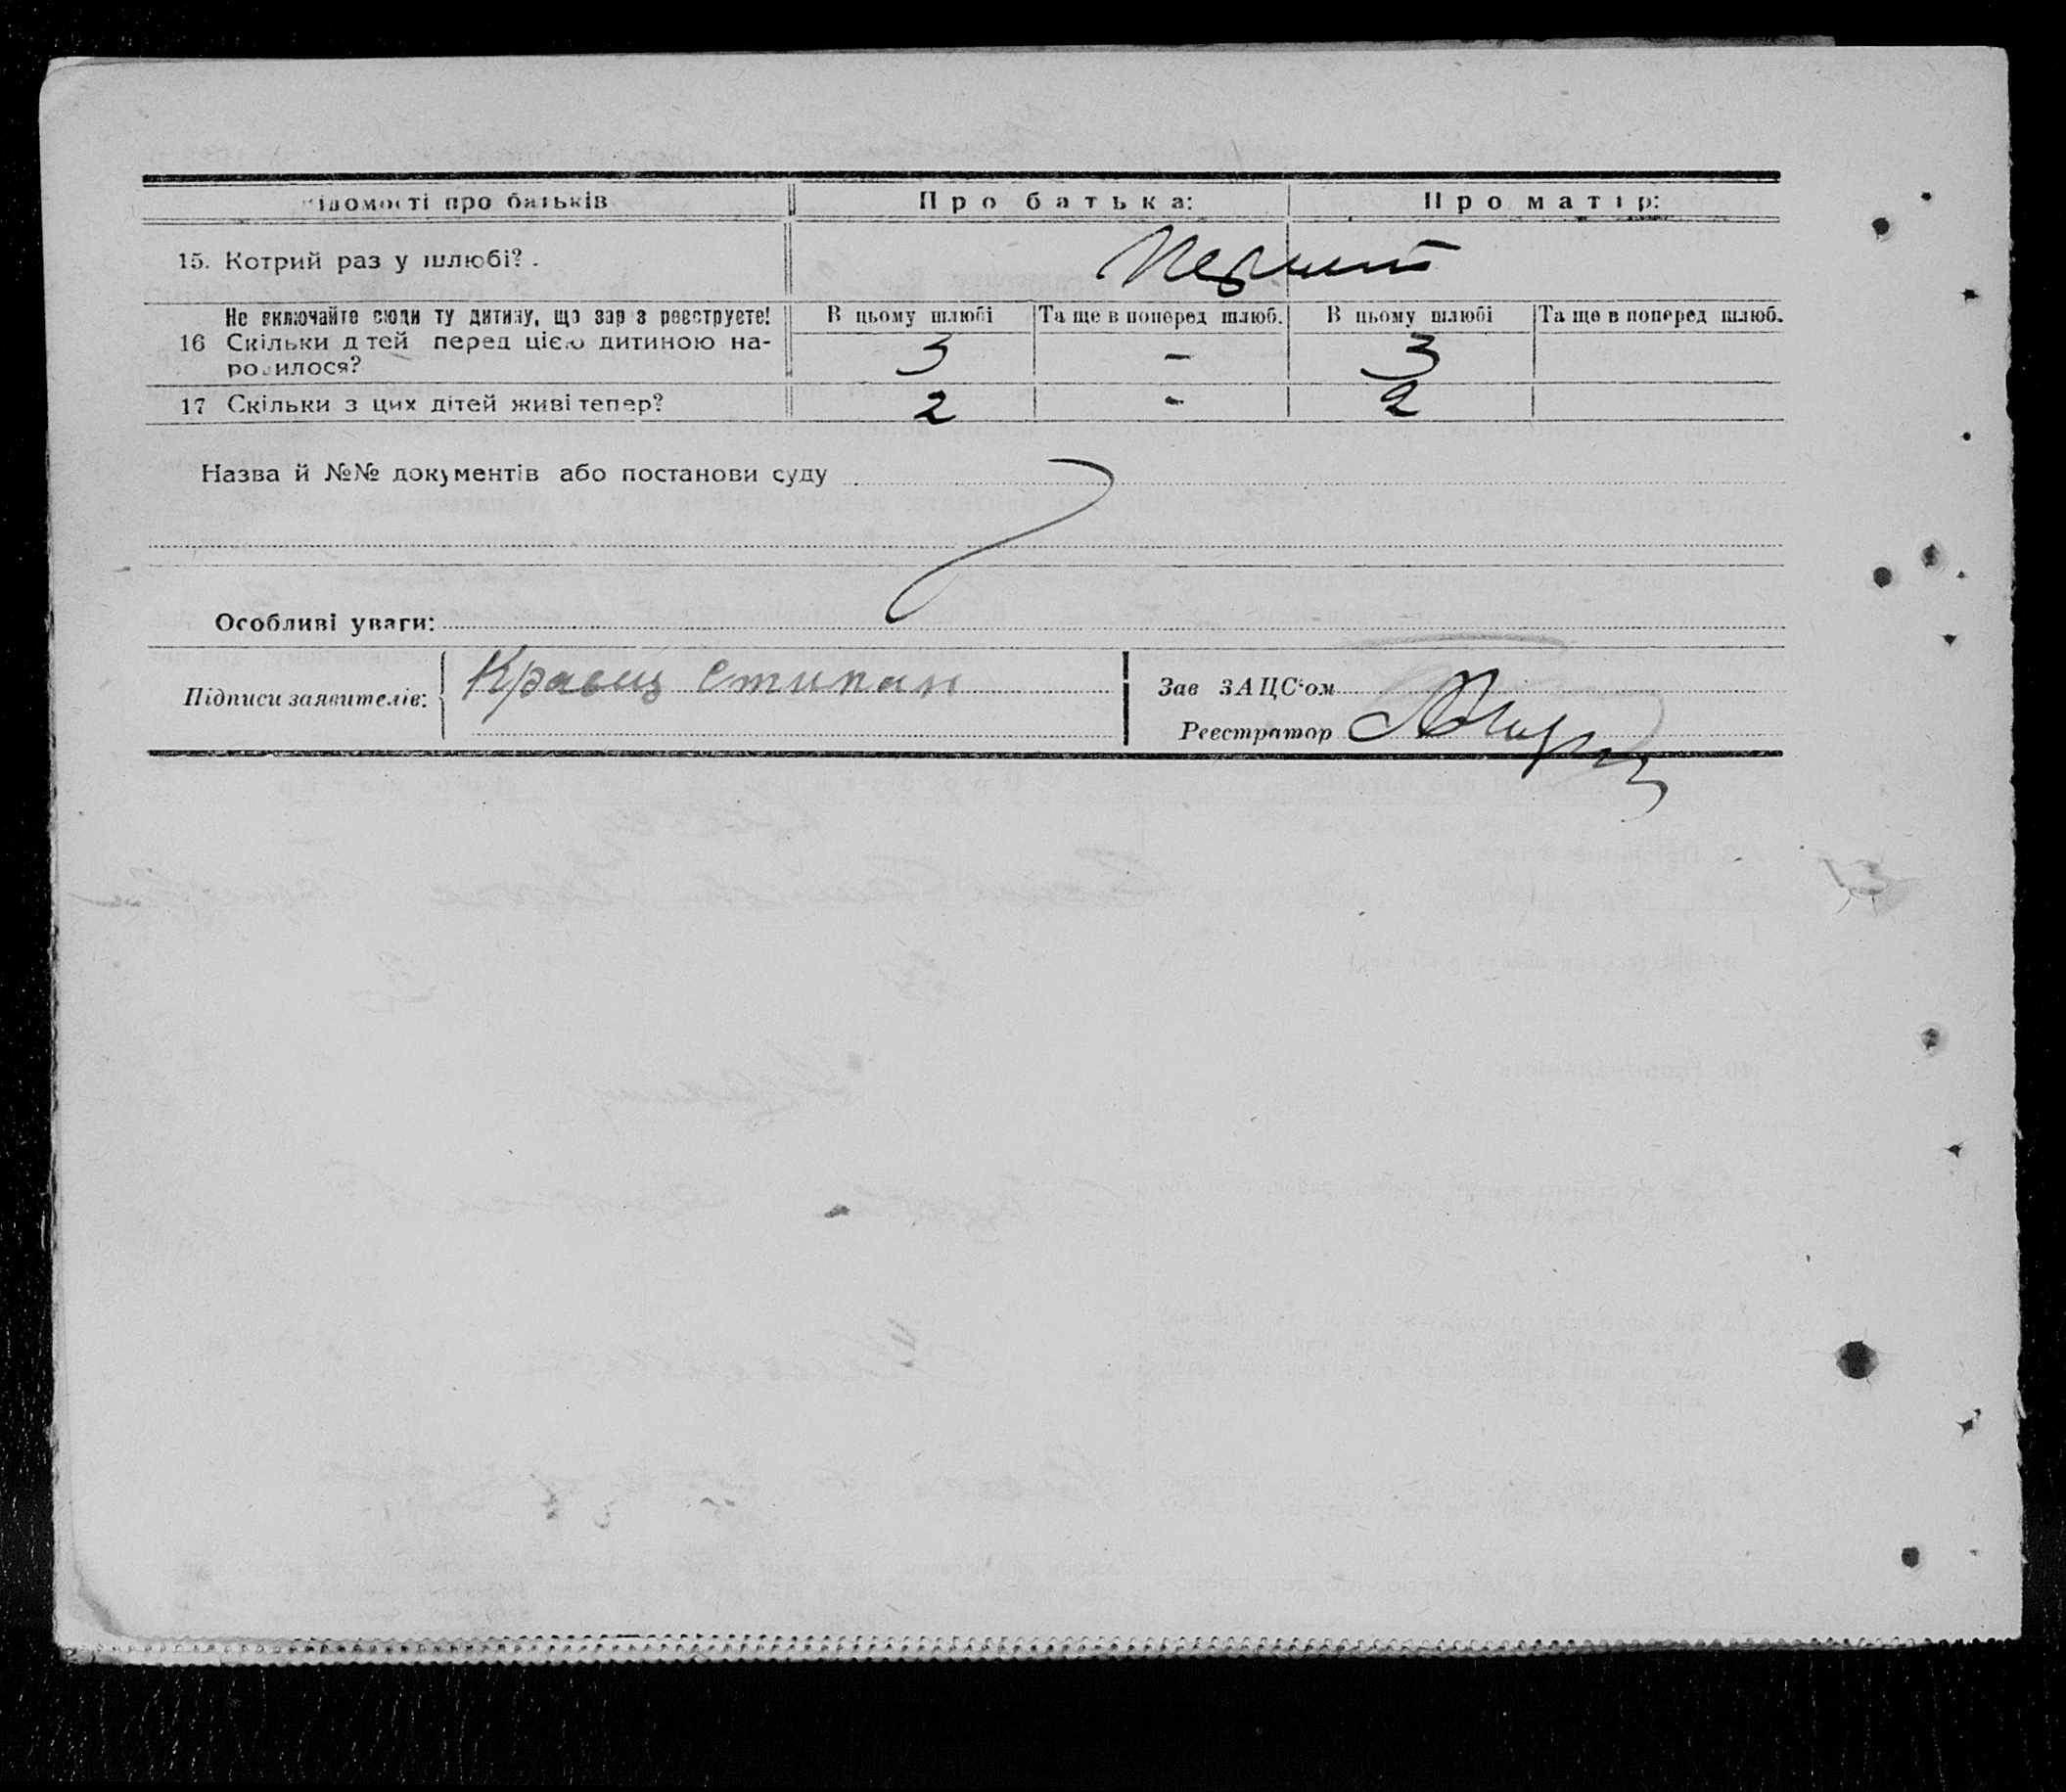 ідомості про батьків
Про батька:
Про матір:
15. Котрий раз у шлюбі?
Перший
В цьому шлюбі
Та ще в поперед шлюб.
В цьому шлюбі
Та ще в поперед шлюб.
Не включайте сюди ту дитину, що зар з реєструєте!
16 Скільки д тей перед цією дитиною на-
родилося?
3
-
3
17 Скільки з цих дітей живі тепер?
2
-
2
Назва й №№ документів або постанови суду
Особливі уваги:
Підписи заявителів:
Кравец Стипан
Зав ЗАЦС'ом
Реєстратор